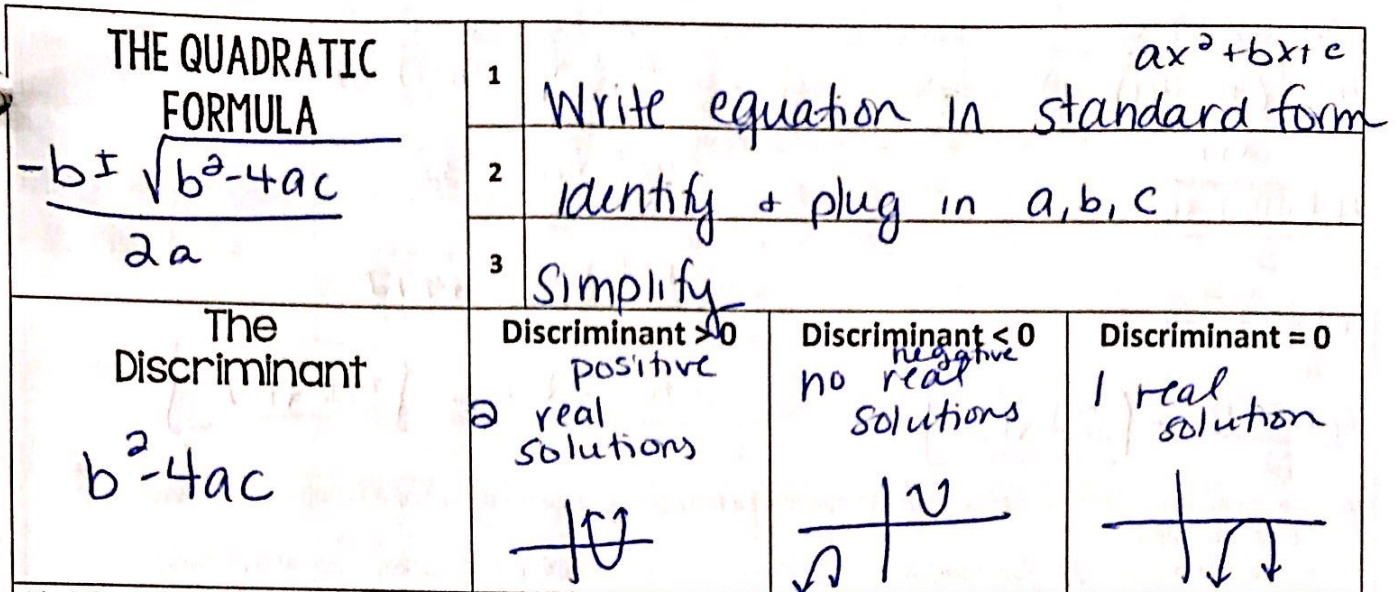 THE QUADRATIC
FORMULA
-b ± √b²-4ac
2a
1
ax²+bx+c
Write equation in standard form
2
identify + plug in a, b, c
3
Simplify
The
Discriminant
b²-4ac
Discriminant > 0
positive
2 real
solutions
Discriminant < 0
negative
no real
solutions
Discriminant = 0
1 real
solution